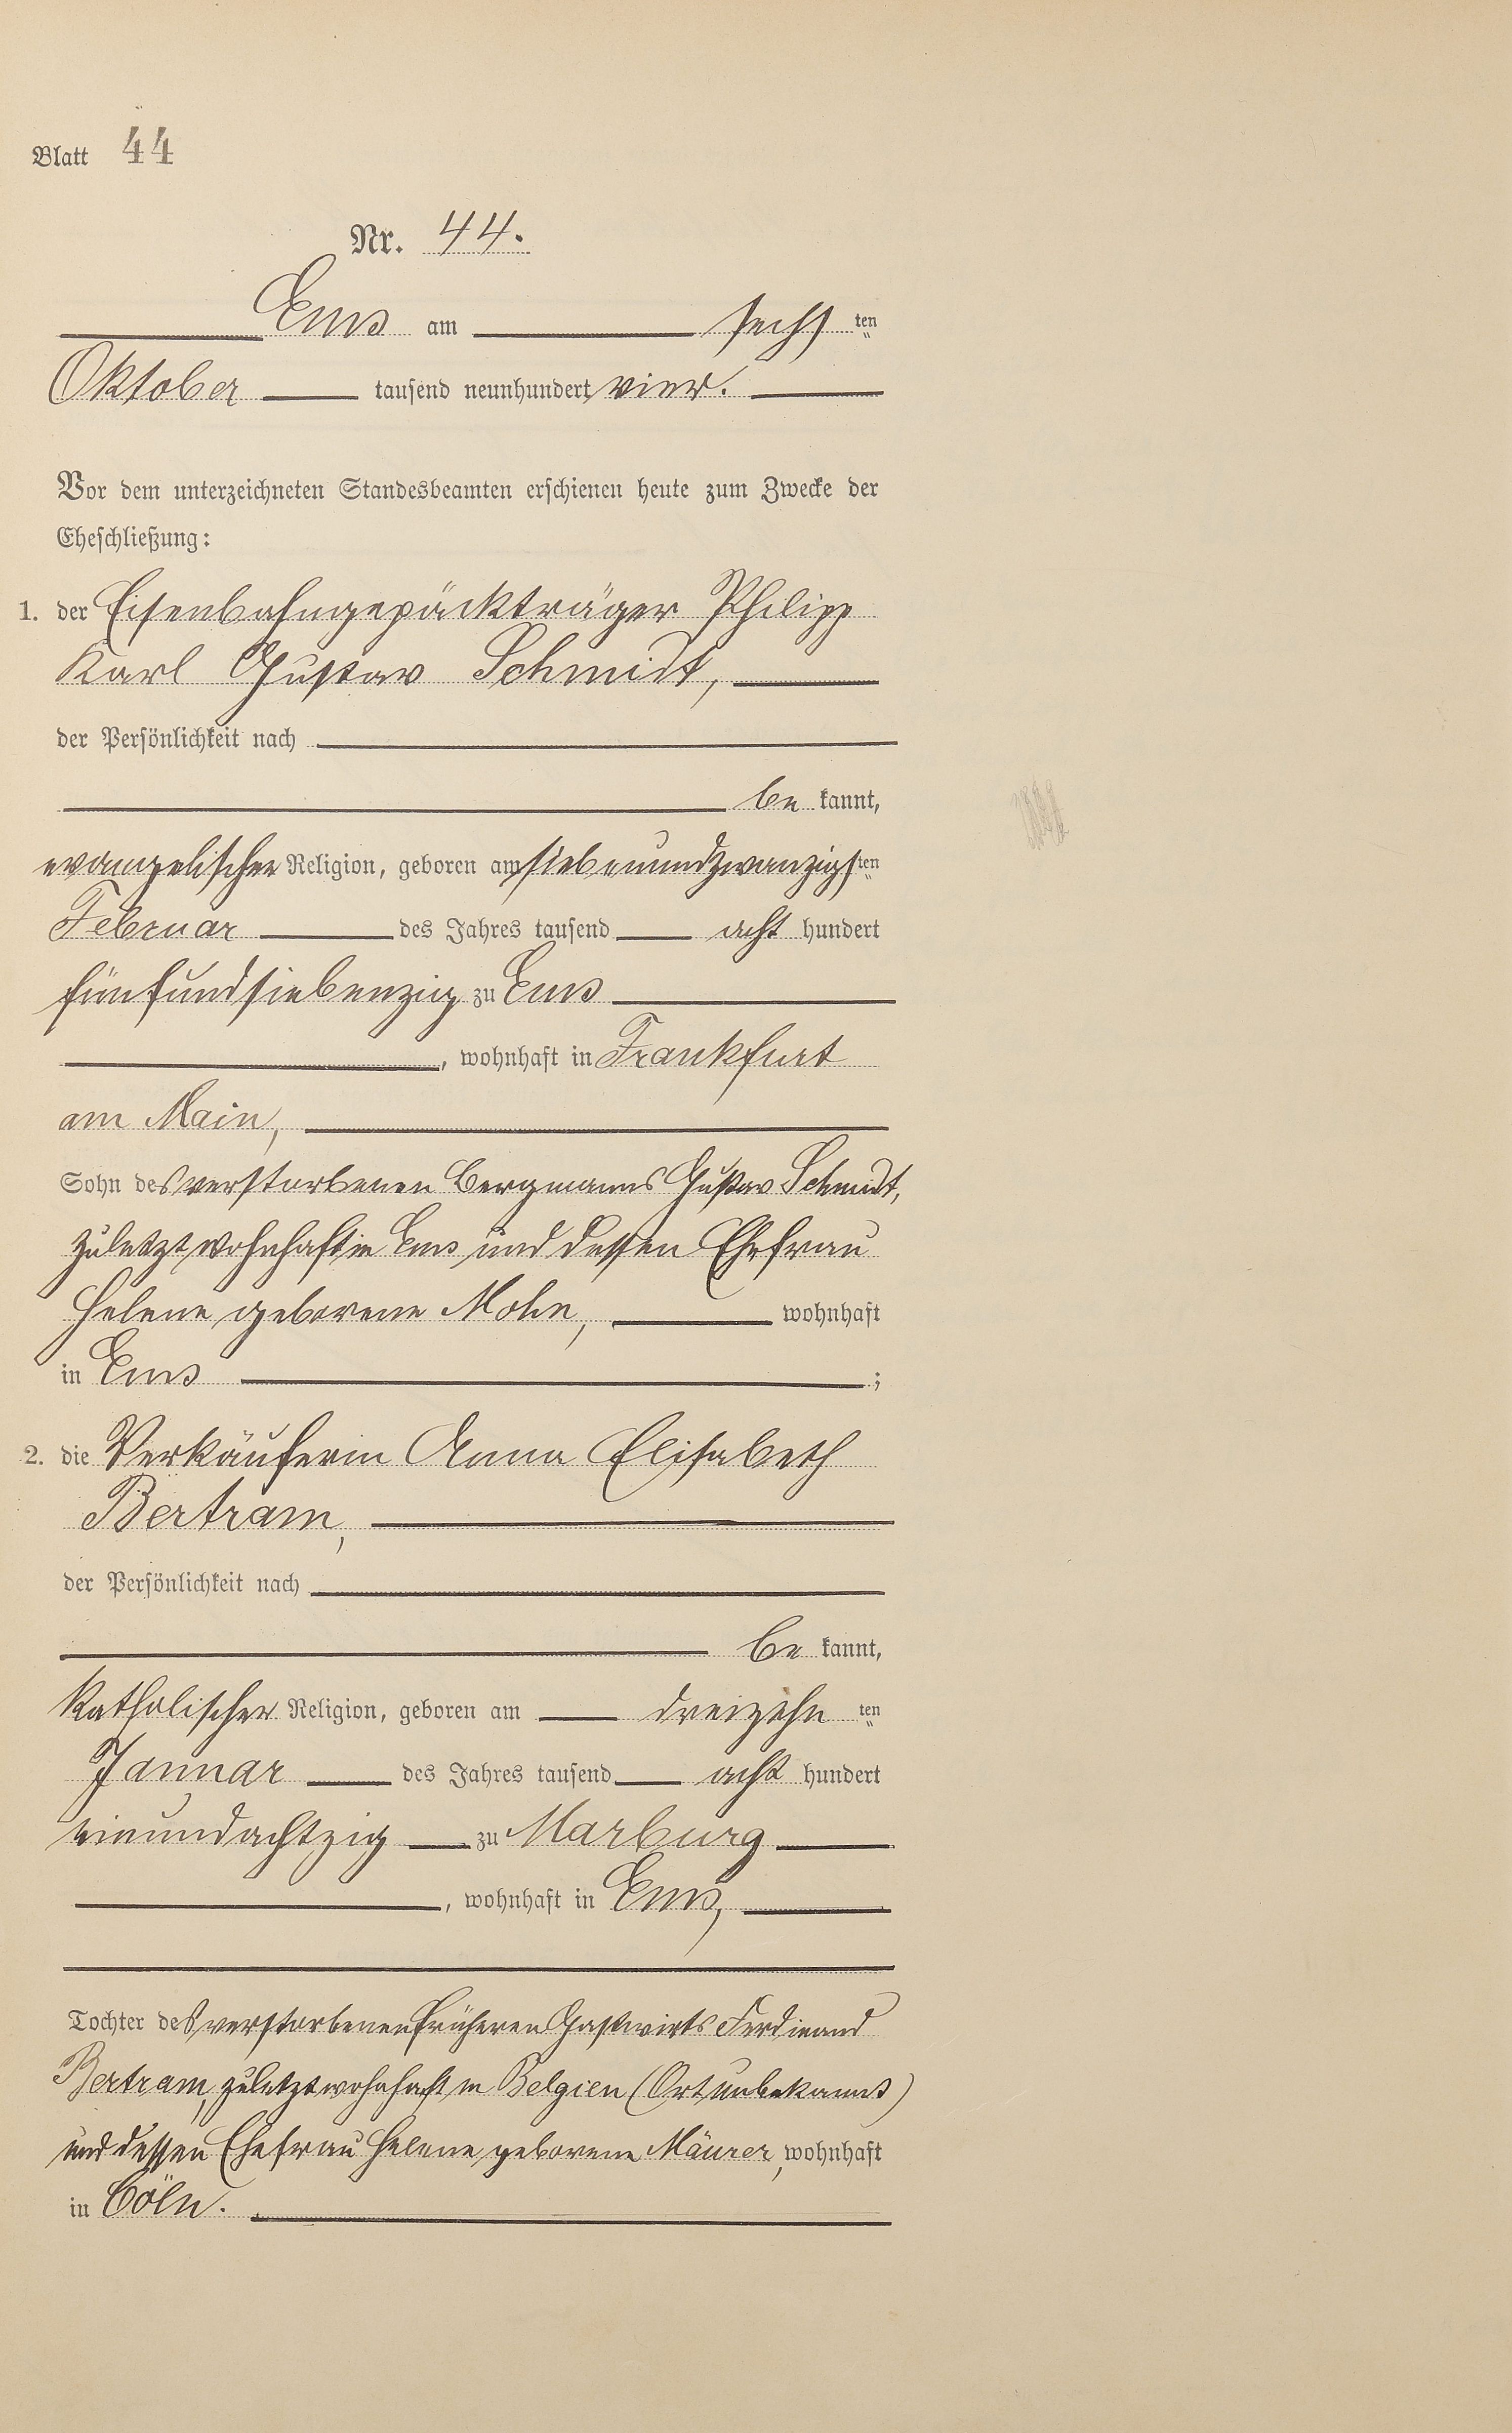 Blatt 44
Nr. 44.
Ems am sechs ten
Oktober tausend neunhundert vier.
Vor dem unterzeichneten Standesbeamten erschienen heute zum Zwecke der
Eheschließung:
1. der Eisenbahngepäckträger Philipp
Karl Gustav Schmidt,
der Persönlichkeit nach
be kannt,
evangelischer Religion, geboren am siebenundzwanzigsten
Februar des Jahres tausend acht hundert
fünfundsiebenzig zu Ems
, wohnhaft in Frankfurt
am Main,
Sohn des verstorbenen Bergmanns Gustav Schmidt,
zuletzt wohnhaft in Ems und dessen Ehefrau
Helene geborene Mohn, wohnhaft
in Ems ;
2. die Verkäuferin Anna Elisabeth
Bertram,
der Persönlichkeit nach
be kannt,
katholischer Religion, geboren am dreizehn ten
Januar des Jahres tausend acht hundert
einundachtzig zu Marburg
, wohnhaft in Ems,
Tochter des verstorbenen früheren Gastwirts Ferdinand
Bertram, zuletzt wohnhaft in Belgien (Ort unbekannt)
und dessen Ehefrau Helene geborene Mäurer, wohnhaft
in Cöln.